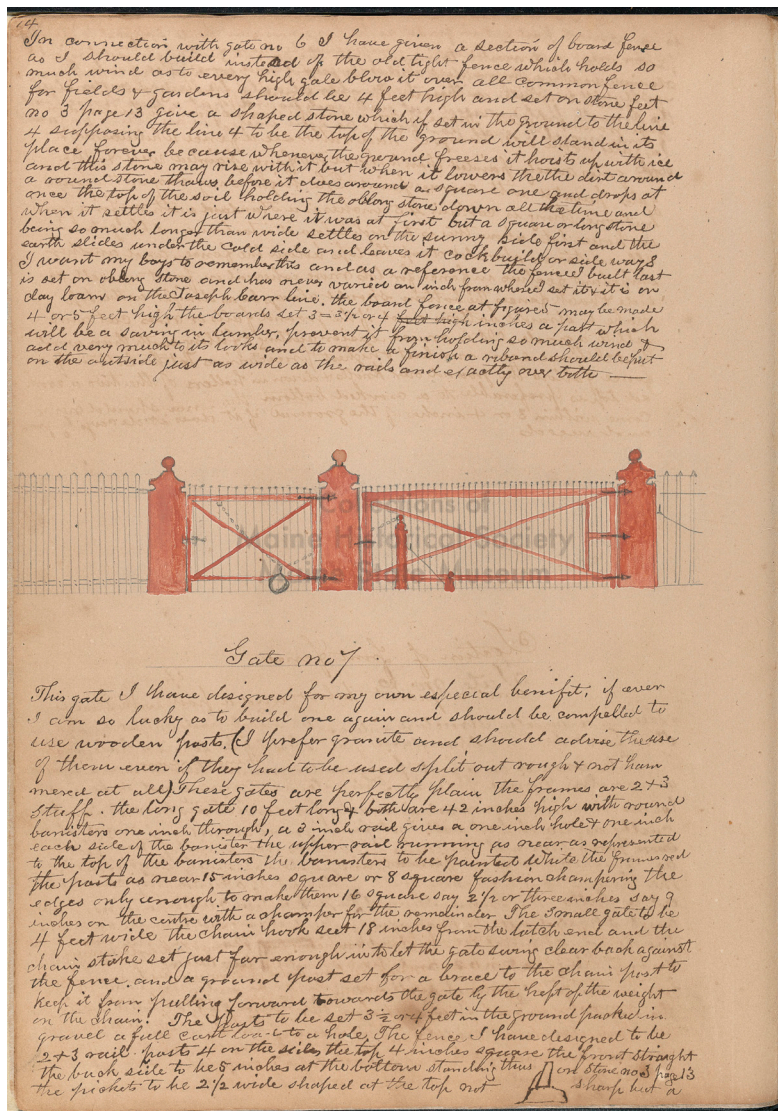 74
In connection with gate no 6 I have given a section of board fence
as I should build instead of the old tight fence which holds so
much wind as to every high gale blow it over, all common fence
for fields & gardens should be 4 feet high and set on stone feet
no 3 page 13 give a shaped stone which if set in the ground to the line
4 supposing the line 4 to be the top of the ground will stand in its
place forever because whenever the ground freeses it hoists up with ice
and this stone may rise with it but when it lowers the the dirt around
a round stone thaws before it does around a square one and drops at
once the top of the soil holding the oblong stone down all the time and
when it settles it is just where it was at first but a square or long stone
being so much longer than wide settles on the sunny side first and the
earth slides under the cold side and leaves it cockbuild or side ways
I want my boys to remember this and as a reference the fence I built last
is set on oblong stone and has never varied an inch from where I set it & it is on
day loam on the Joseph Carr line. the board fence at figure 5 may be made
4 or 5 feet high the boards set 3 = 3½ or 4 feet high inches a part which
will be a saving in lumber, prevent it from holding so much wind &
add very much to its looks and to make a finish a riband should be put
on the outside just as wide as the rails and exactly over both
Collections of
Maine Historical Society
Maine State Museum
Gate no 7.
This gate I have designed for my own especial benifit, if ever
I am so lucky as to build one again and should be compelled to
use wooden posts. (I prefer granite and should advise the use
of them even if they had to be used split out rough & not ham
mered at all) These gates are perfectly plain the frames are 2 + 3
stuff. the long gate 10 feet long & both are 42 inches high with round
banisters one inch through, a 3 inch rail gives a one inch hole & one inch
each side of the banister the upper rail running as near as represented
to the top of the banisters the banisters to be painted white the frames red
the posts as near 15 inches square or 8 square fashion champering the
edges only enough to make them 16 square say 2½ or three inches say 9
inches on the centre with a champer for the remainder. The small gate to be
4 feet wide the chain hook seet 18 inches from the latch end and the
chain stake set just far enough in to let the gate swing clear back against
the fence, and a ground post set for a brace to the chain post to
keep it from pulling forward towards the gate by the heft of the weight
on the chain. The posts to be set 3½ or 4 feet in the ground packed in
gravel a full cart load to a hole. The fence I have designed to be
2 + 3 rail. posts 4 on the sides the top 4 inches square the front straight
the back side to be 5 inches at the bottom standing thus on stone no 3 page 13
the pickets to be 2½ wide shaped at the top not sharp but a